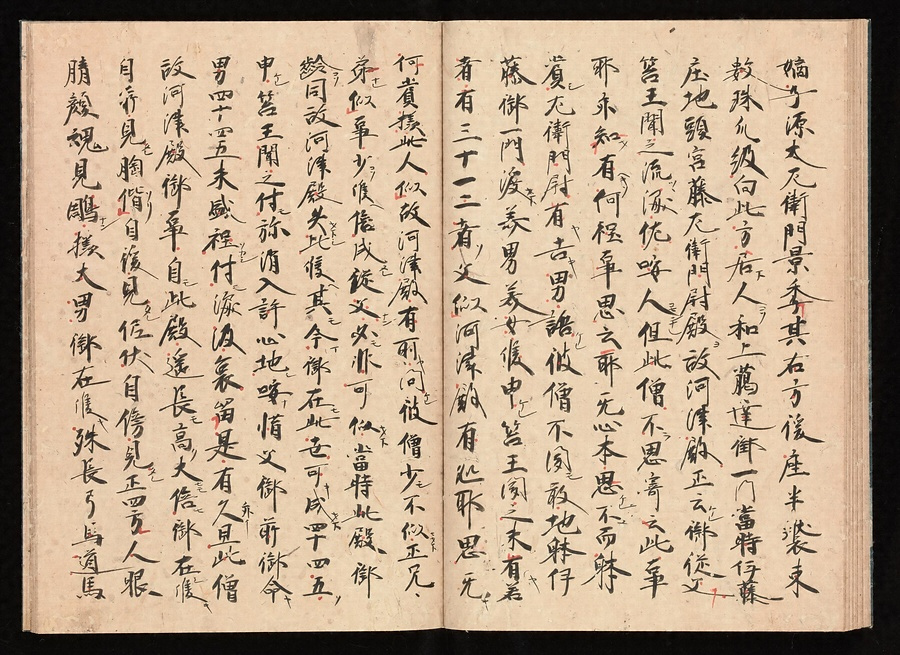 嫡子源太左衛門景季其右方後座半装束
数珠爪級向此方居人和上﨟達御一門當時伊藤
庄地頭宮藤左衛門尉殿故河津殿正云御従父
筥王聞之流涙佐喚人但此僧不思寄云此事
耶不知有何程事思云耶无心本思不而躰
賞左衛門尉有吉男語彼僧不関敢地躰伊
藤御一門渡美男美女侯申筥王聞之末有若
者有三十一二者父似河津殿有処耶思无
何賞様此人似故河津殿有耶問彼僧少不似正兄
弟似事少侯儘成従父必非可似當時此殿御
齢同故河津殿失此侯其今御在此世可成四十四五
申筥王聞之付弥消入許心地喚惜父御前御命
男四十四五未盛程付涙汲哀留是有久且此僧
故河津殿御事自此殿遥長高大倍御在侯
自前見胸偕自後見佐伏自傍見正四方人眼
晴顔魂見鵰様大男御在侯殊長弓馬道馬